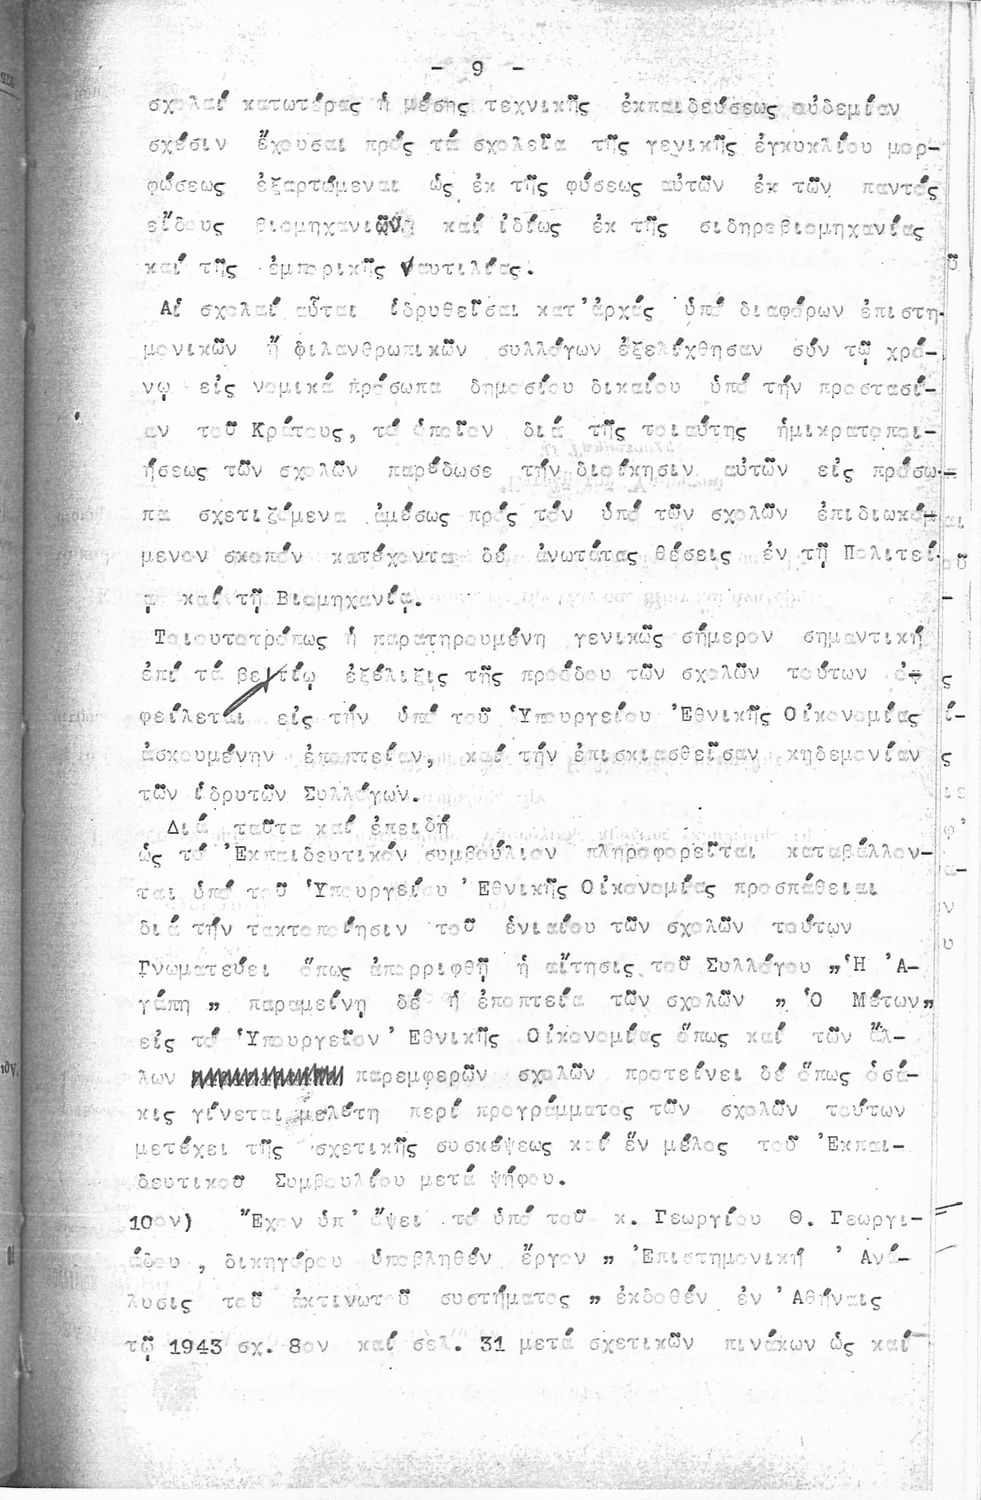 - 9 -
σχολαί κατωτέρας ἤ μέσης τεχνικῆς ἐκπαιδεύσεως οὐδεμίαν
σχέσιν ἔχουσαι πρός τά σχολεῖα τῆς γενικῆς ἐγκυκλίου μορ-
φώσεως ἐξαρτώμεναι ὡς ἐκ τῆς φύσεως αὐτῶν ἐκ τῶν παντός
εἴδους βιομηχανιῶν καί ἰδίως ἐκ τῆς σιδηροβιομηχανίας
καί τῆς ἐμπορικῆς Ναυτιλίας.
Αἱ σχολαί αὗται ἱδρυθεῖσαι κατ'ἀρχάς ὑπό διαφόρων ἐπιστη-
μονικῶν ἤ φιλανθρωπικῶν συλλόγων ἐξελίχθησαν σύν τῷ χρό-
νῳ εἰς νομικά πρόσωπα δημοσίου δικαίου ὑπό τήν προστασί-
αν τοῦ Κράτους, τό ὁποῖον διά τῆς τοιαύτης ἡμικρατοποι-
ήσεως τῶν σχολῶν παρέδωσε τήν διοίκησιν αὐτῶν εἰς πρόσω-
πα σχετιζόμενα ἀμέσως πρός τόν ὑπό τῶν σχολῶν ἐπιδιωκό-
μενον σκοπόν κατέχοντα δέ ἀνωτάτας θέσεις ἐν τῇ Πολιτεί-
ᾳ καί τῇ Βιομηχανίᾳ.
Τοιουτοτρόπως ἡ παρατηρουμένη γενικῶς σήμερον σημαντική
ἐπί τά βελτίω ἐξέλιξις τῆς προόδου τῶν σχολῶν τούτων ὀφ
φείλεται εἰς τήν ὑπό τοῦ Ὑπουργείου Ἐθνικῆς Οἰκονομίας
ἀσκουμένην ἐποπτείαν, καί τήν ἐπισκιασθεῖσαν κηδεμονίαν
τῶν ἱδρυτῶν Συλλόγων.
Διά ταῦτα καί ἐπειδή
ὡς τό Ἐκπαιδευτικόν συμβούλιον πληροφορεῖται καταβάλλον-
ται ὑπό τοῦ Ὑπουργείου Ἐθνικῆς Οἰκονομίας προσπάθειαι
διά τήν τακτοποίησιν τοῦ ἑνιαίου τῶν σχολῶν τούτων
Γνωματεύει ὅπως ἀπορριφθῇ ἡ αἴτησις τοῦ Συλλόγου „Ἡ Ἀ-
γάπη „ παραμείνῃ δέ ἡ ἐποπτεία τῶν σχολῶν „ Ὁ Μέτων„
εἰς τό Ὑπουργεῖον Ἐθνικῆς Οἰκονομίας ὅπως καί τῶν ἄλ-
λων παρεμφερῶν σχολῶν προτείνει δέ ὅπως ὁσά-
κις γίνεται μελέτη περί προγράμματος τῶν σχολῶν τούτων
μετέχει τῆς σχετικῆς συσκέψεως καί ἕν μέλος τοῦ Ἐκπαι-
δευτικοῦ Συμβουλίου μετά ψήφου.
10ον) Ἔχον ὑπ' ὄψει τό ὑπό τοῦ κ. Γεωργίου Θ. Γεωργι-
άδου , δικηγόρου ὑποβληθέν ἔργον „ Ἐπιστημονική Ἀνά-
λυσις τοῦ ἀκτινωτοῦ συστήματος „ ἐκδοθέν ἐν Ἀθήναις
τῷ 1943 σχ. 8ον καί σελ. 31 μετά σχετικῶν πινάκων ὡς καί